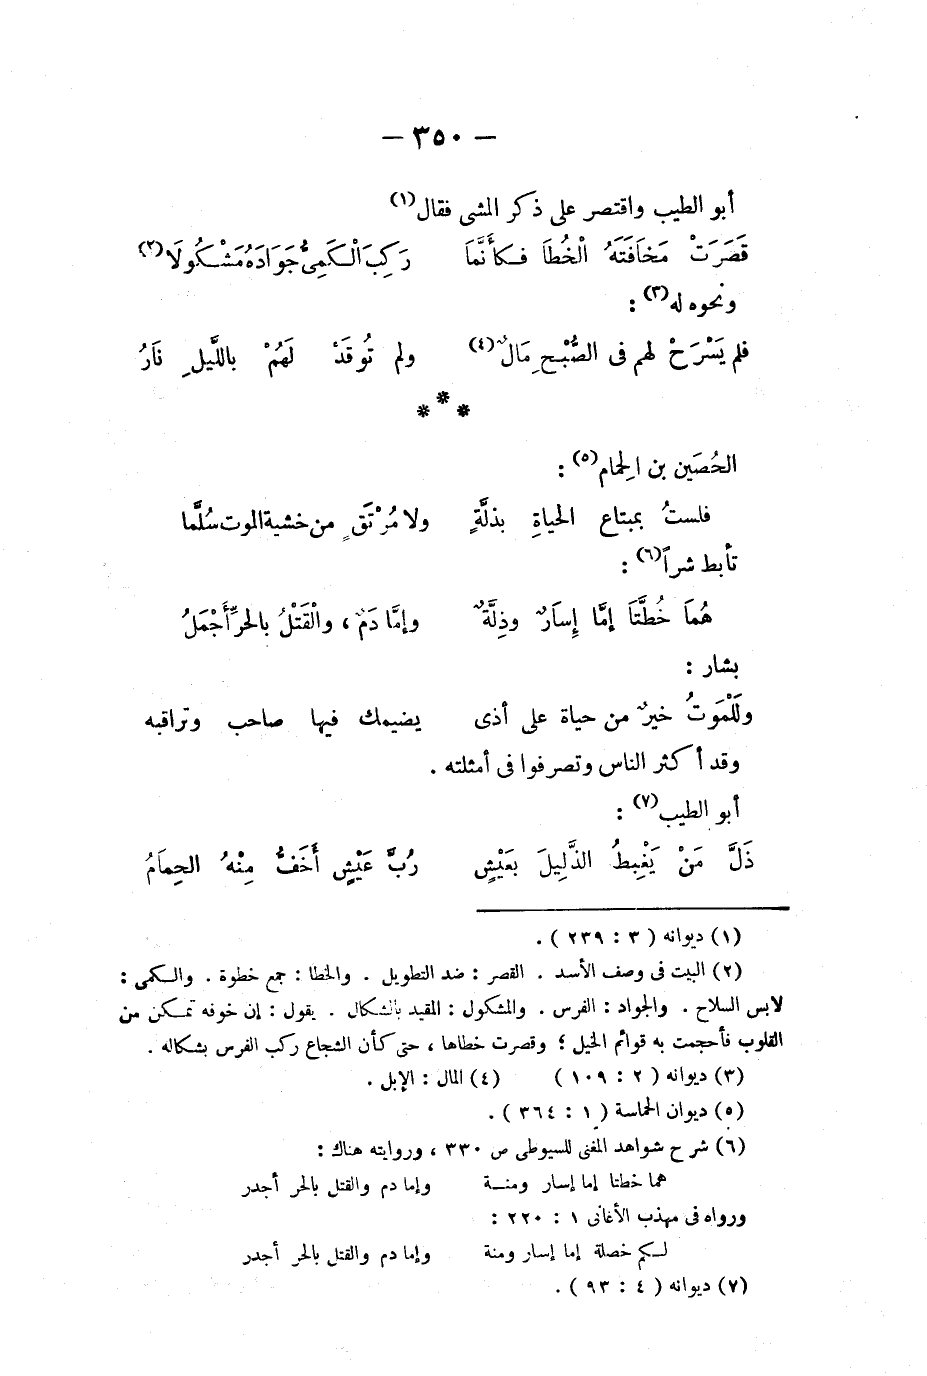 — ٣٥٠ —
أبو الطيب واقتصر على ذكر المشى فقال(١)
قَصَرَتْ مَخَافَتَهُ الْخُطَا فكأَنَّمَا رَكِبَ الْكَمِىُّ جَوَادَهُ مَشْكُولَا(٢)
ونحوه له(٣) :
فلم يَسْرَحْ لهم فى الصُّبْحِ مَالٌ(٤) ولم تُوقَدْ لَهُمْ بالليلِ نَارُ
* * *
الحُصَين بن الحِمام(٥) :
فلستُ بمبتاع الحياةِ بذلَّةٍ ولا مُرْتَقٍ من خشية الموت سُلَّما
تأبط شراً(٦) :
هُمَا خُطَّتَا إمَّا إسَارٌ وذِلَّةٌ وإمَّا دَمٌ ، والْقَتْلُ بالحرِّ أَجْمَلُ
بشار :
ولَلْمَوتُ خيرٌ من حياة على أذى يضيمك فيها صاحب وتراقبه
وقد أكثر الناس وتصرفوا فى أمثلته .
أبو الطيب(٧) :
ذَلَّ مَنْ يَغْبِطُ الذَّلِيلَ بعَيْشٍ رُبَّ عَيْشٍ أَخَفُّ مِنْهُ الحِمَامُ
(١) ديوانه ( ٣ : ٢٣٩ ) .
(٢) البيت فى وصف الأسد . القصر : ضد التطويل . والخطا : جمع خطوة . والكمى :
لابس السلاح . والجواد : الفرس . والمشكول : المقيد بالشكال . يقول : إن خوفه تمكن من
القلوب فأحجمت به قوائم الخيل ؛ وقصرت خطاها ، حتى كأن الشجاع ركب الفرس بشكاله .
(٣) ديوانه ( ٢ : ١٠٩ ) (٤) المال : الإبل .
(٥) ديوان الحماسة ( ١ : ٣٦٤ ) .
(٦) شرح شواهد المغنى للسيوطى ص ٣٣٠ ، وروايته هناك :
هما خطتا إما إسار ومنة وإما دم والقتل بالحر أجدر
ورواه فى مهذب الأغانى ١ : ٢٢٠ :
لكم خصلة إما إسار ومنة وإما دم والقتل بالحر أجدر
(٧) ديوانه ( ٤ : ٩٣ ) .